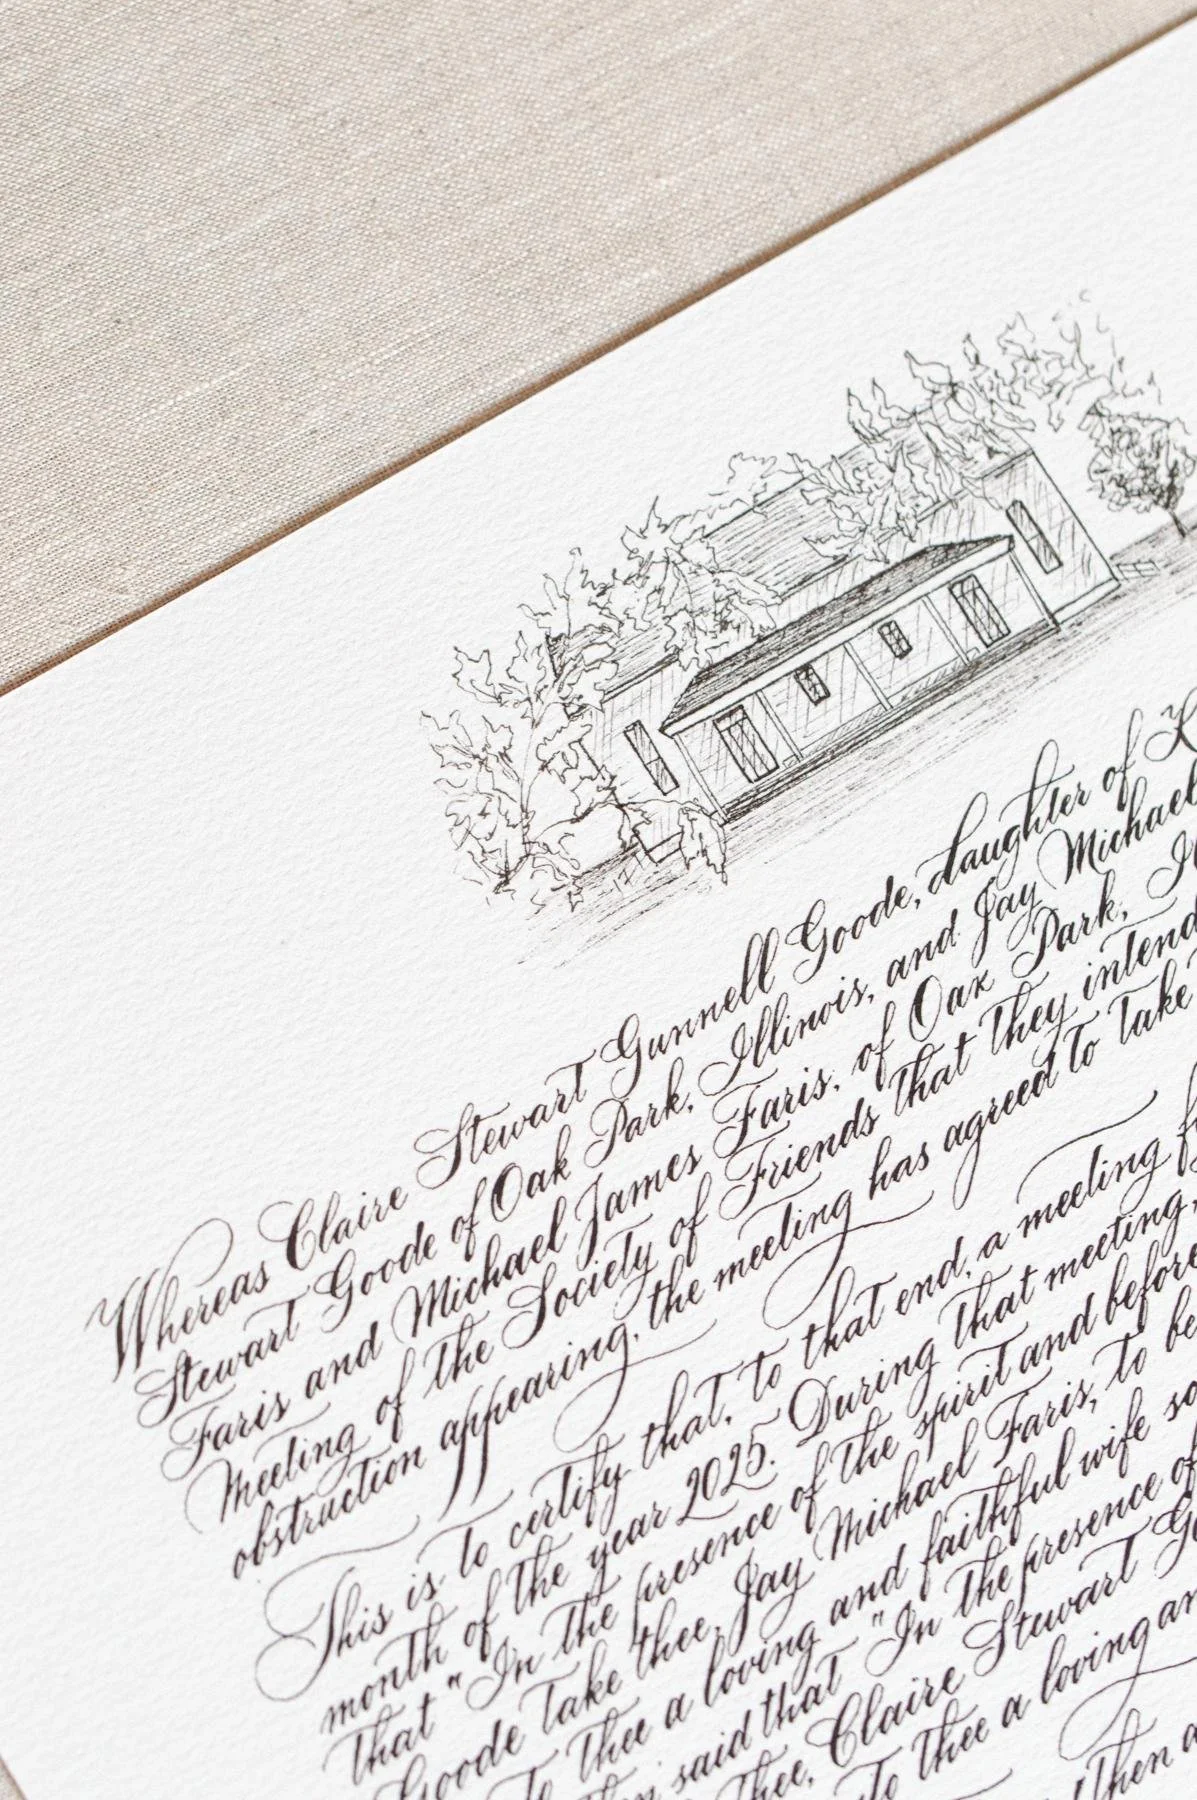 Whereas Claire Stewart Gunnell Goode, daughter of K
Stewart Goode of Oak Park, Illinois, and Jay Michael
Faris and Michael James Faris, of Oak Park,
Meeting of the Society of Friends that they intend
obstruction appearing, the meeting has agreed to take
This is to certify that, to that end, a meeting
month of the year 2025. During that meeting,
that "In the presence of the spirit and before
Goode take thee, Jay Michael Faris, to be
to thee a loving and faithful wife so
said that "In the presence of
thee, Claire Stewart
to thee a loving
Then